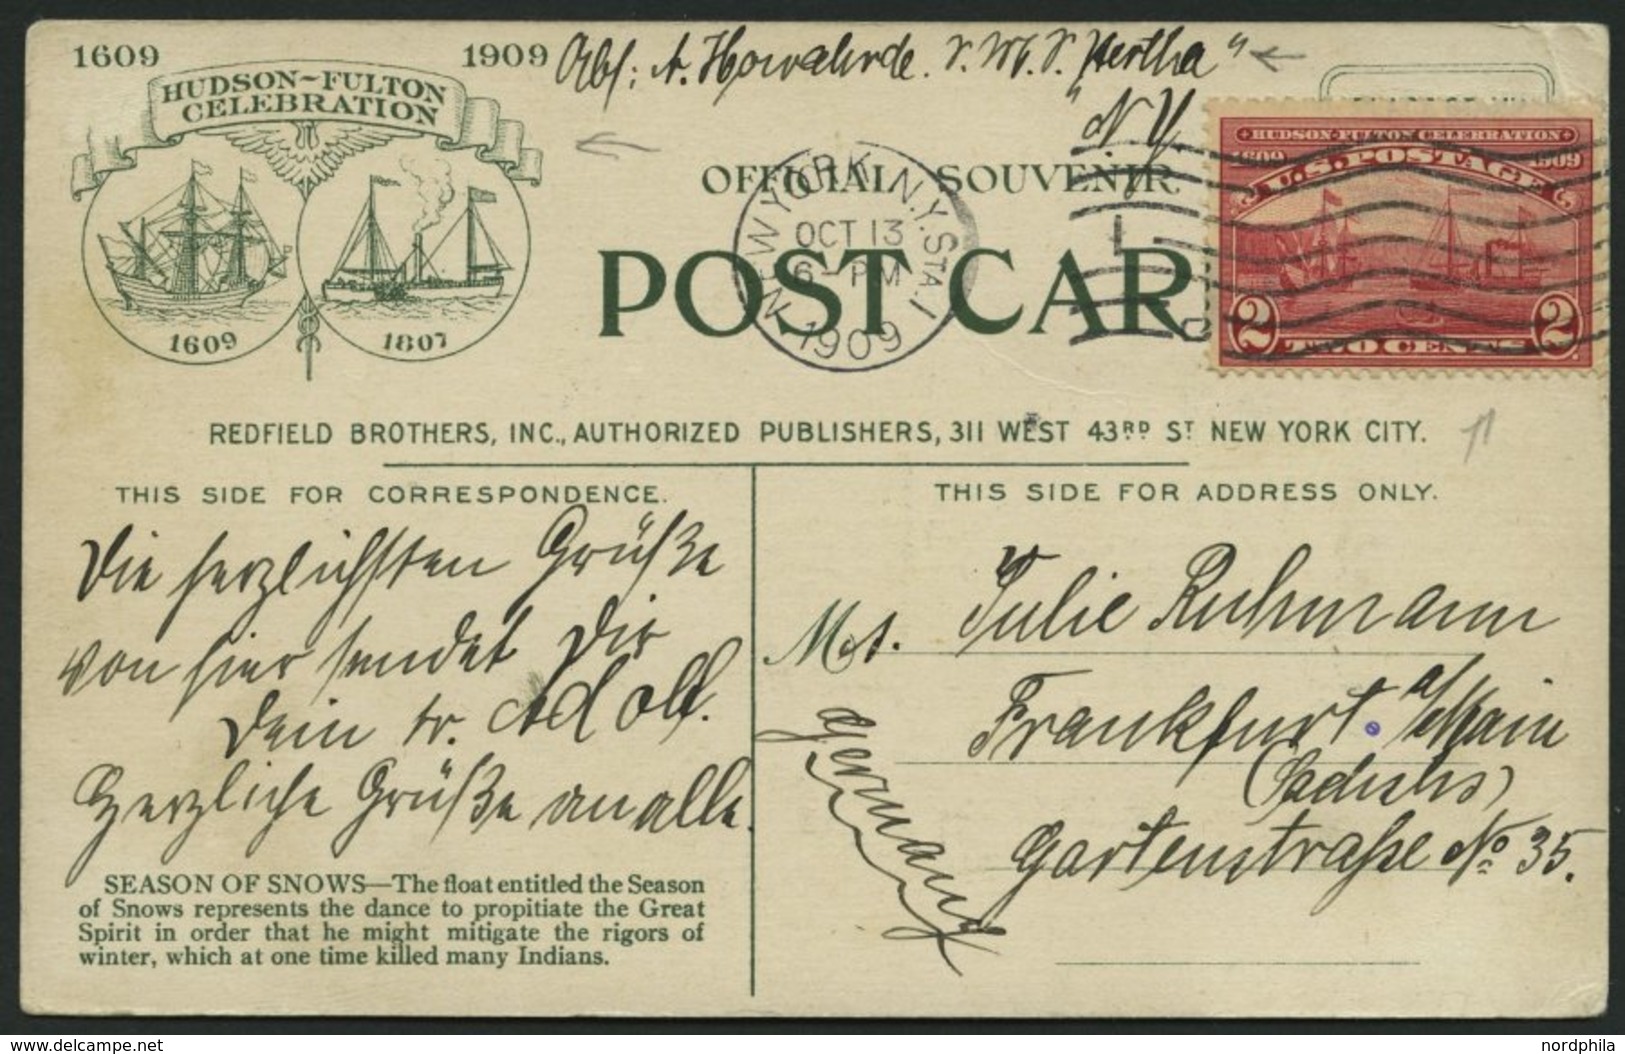 1609 1909
HUDSON–FULTON
CELEBRATION
1609
1807
Abs: A. Howahrde. S. M. S. "Hertha"
N.Y.
OFFICIAL SOUVENIR
POST CAR
NEW YORK, N.Y. STA. I
OCT 13
6 - PM
1909
HUDSON-FULTON CELEBRATION
1609 1909
U.S. POSTAGE
2 TWO CENTS 2
REDFIELD BROTHERS, INC., AUTHORIZED PUBLISHERS, 311 WEST 43RD ST NEW YORK CITY.
THIS SIDE FOR CORRESPONDENCE.
THIS SIDE FOR ADDRESS ONLY.
Die herzlichsten Grüße
von hier sendet Dir
Dein tr. Adolf.
Herzliche Grüße an alle.
SEASON OF SNOWS—The float entitled the Season
of Snows represents the dance to propitiate the Great
Spirit in order that he might mitigate the rigors of
winter, which at one time killed many Indians.
Julie Ruhmann
Frankfurt a/Main
(Sachshs)
Gartenstraße No 35.
Germany
delcampe.net
nordphila